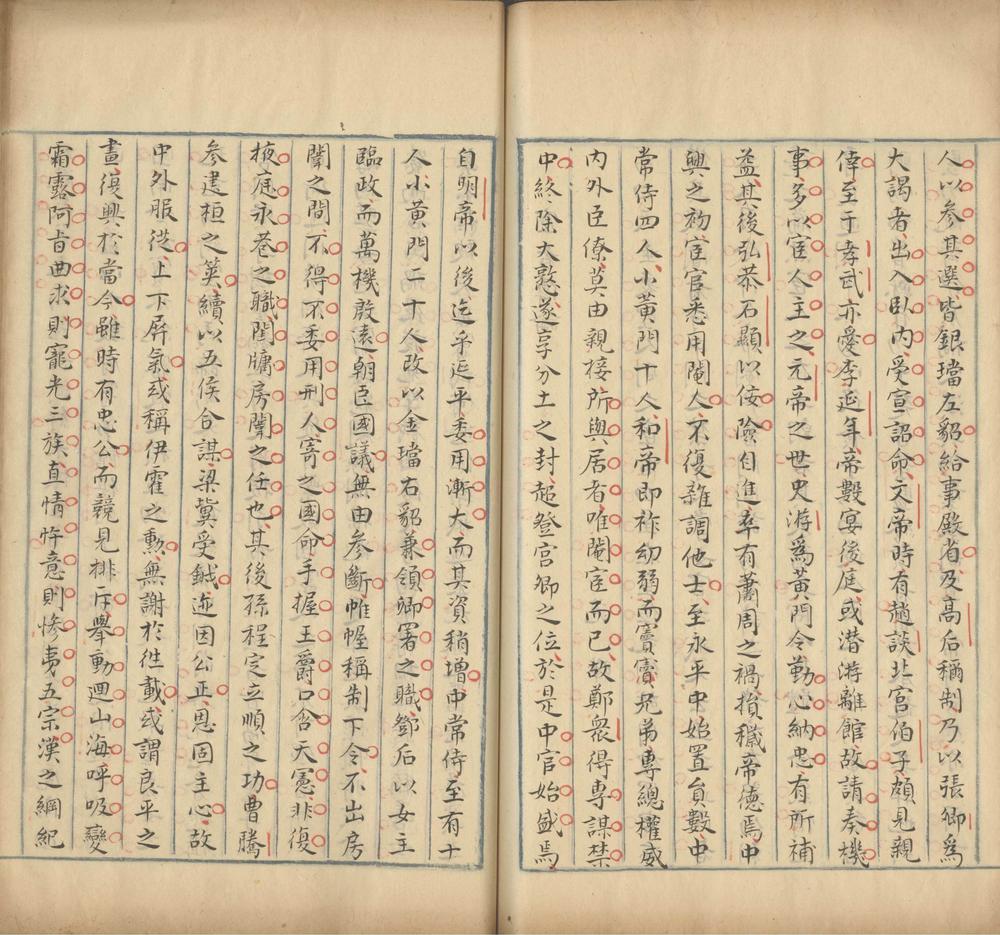 人以參其選皆銀璫左貂給事殿省及高后稱制乃以張卿為
大謁者出入臥內受宣詔命文帝時有趙談北宮伯子頗見親
倖至于孝武亦愛李延年帝數宴後庭或潛游離館故請奏機
事多以宦人主之元帝之世史游為黃門令勤心納忠有所補
益其後弘恭石顯以佞險自進卒有蕭周之禍損穢帝德焉中
興之初宦官悉用閹人不復雜調他士至永平中始置員數中
常侍四人小黃門十人和帝即祚幼弱而竇憲兄弟專總權威
內外臣僚莫由親接所與居者唯閹宦而已故鄭衆得專謀禁
中終除大憝遂享分土之封超登宮卿之位於是中官始盛焉
自明帝以後迄乎延平委用漸大而其資稍增中常侍至有十
人小黃門二十人改以金璫右貂兼領卿署之職鄧后以女主
臨政而萬機殷遠朝臣國議無由參斷帷幄稱制下令不出房
闈之間不得不委用刑人寄之國命手握王爵口含天憲非復
掖庭永巷之職閨牖房闈之任也其後孫程定立順之功曹騰
參建桓之筴續以五侯合謀梁冀受鉞迹因公正恩固主心故
中外服從上下屏氣或稱伊霍之勲無謝於往載或謂良平之
畫復興於當今雖時有忠公而競見排斥舉動迴山海呼吸變
霜露阿旨曲求則寵光三族直情忤意則慘夷五宗漢之綱紀